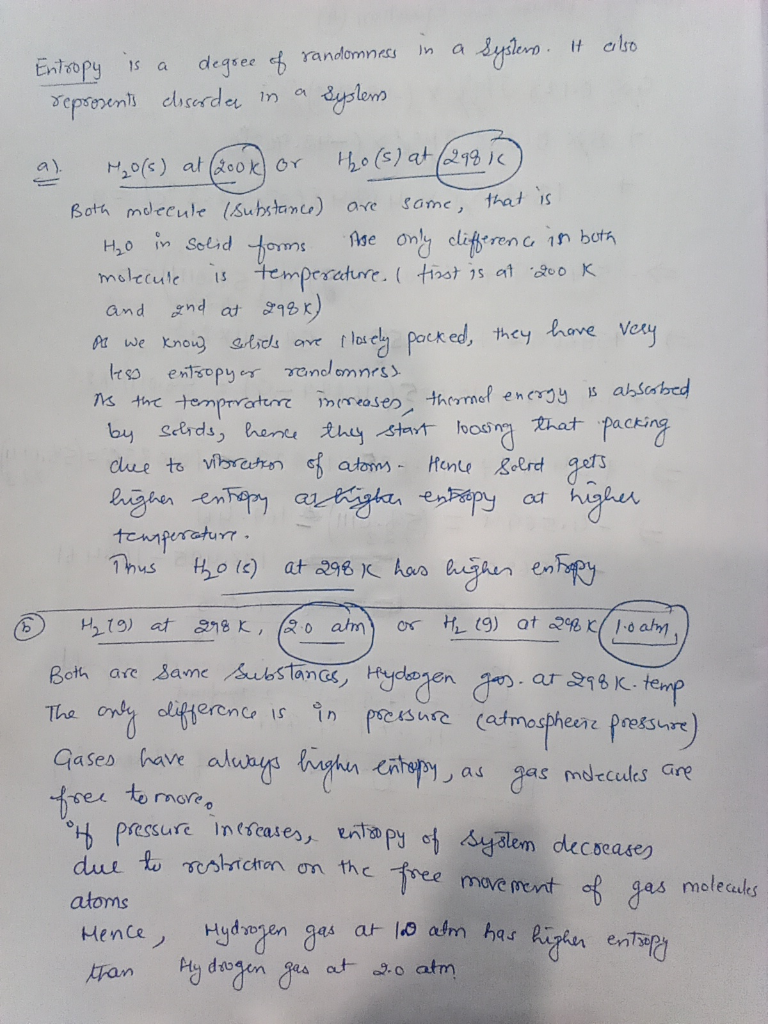 Entropy is a degree of randomness in a system. It also
represents disorder in a system
a). H2O(s) at 200K or H2O(s) at 298 K
Both molecule (substance) are same, that is
H2O in solid forms The only difference in both
molecule is temperature. ( first is at 200 K
and 2nd at 298K)
As we know, solids are closely packed, they have very
less entropy or randomness
As the temperature increases, thermal energy is absorbed
by solids, hence they start loosing that packing
due to vibration of atoms- Hence Solid gets
higher entropy as higher entropy at higher
temperature.
Thus H2O (s) at 298 K has higher entropy
b H2(g) at 298 K, 2.0 atm or H2 (g) at 298 K 1.0 atm,
Both are same substances, Hydrogen gas. at 298 K. temp
The only difference is in pressure (atmospheric pressure)
Gases have always higher entropy, as gas molecules are
free to move.
If pressure increases, entropy of system decreases
due to restriction on the free movement of gas molecules
atoms
Hence, Hydrogen gas at 1.0 atm has higher entropy
than Hydrogen gas at 2.0 atm.